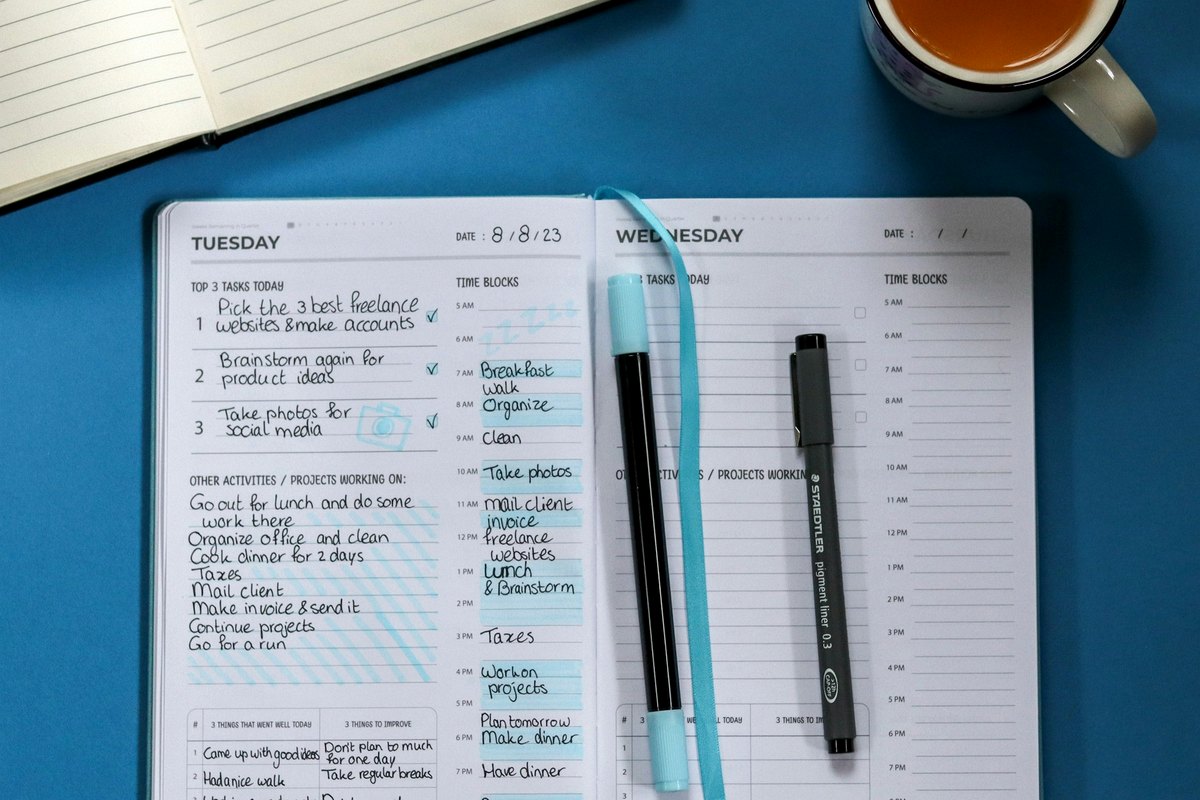 TUESDAY
DATE : 8/8/23
TOP 3 TASKS TODAY
1 Pick the 3 best freelance
websites & make accounts
2 Brainstorm again for
product ideas
3 Take photos for
social media
OTHER ACTIVITIES / PROJECTS WORKING ON:
Go out for lunch and do some
work there
Organize office and clean
Cook dinner for 2 days
Taxes
Mail client
Make invoice & send it
Continue projects
Go for a run
# 3 THINGS THAT WENT WELL TODAY 3 THINGS TO IMPROVE
1 Came up with good ideas Don't plan to much
for one day
2 Had a nice walk Take regular breaks
TIME BLOCKS
5 AM
zzzzz
6 AM
7 AM Breakfast
walk
8 AM Organize
9 AM Clean
10 AM Take photos
11 AM mail client
invoice
12 PM freelance
websites
1 PM Lunch
& Brainstorm
2 PM
3 PM Taxes
4 PM Work on
projects
5 PM
Plan tomorrow
6 PM Make dinner
7 PM Have dinner
WEDNESDAY
DATE : / /
3 TASKS TODAY
ACTIVITIES / PROJECTS WORKING
# 3 WELL TODAY 3 THINGS TO
1
2
3
TIME BLOCKS
5 AM
6 AM
7 AM
8 AM
9 AM
10 AM
11 AM
12 PM
1 PM
2 PM
3 PM
4 PM
5 PM
6 PM
7 PM
STAEDTLER pigment liner 0.3